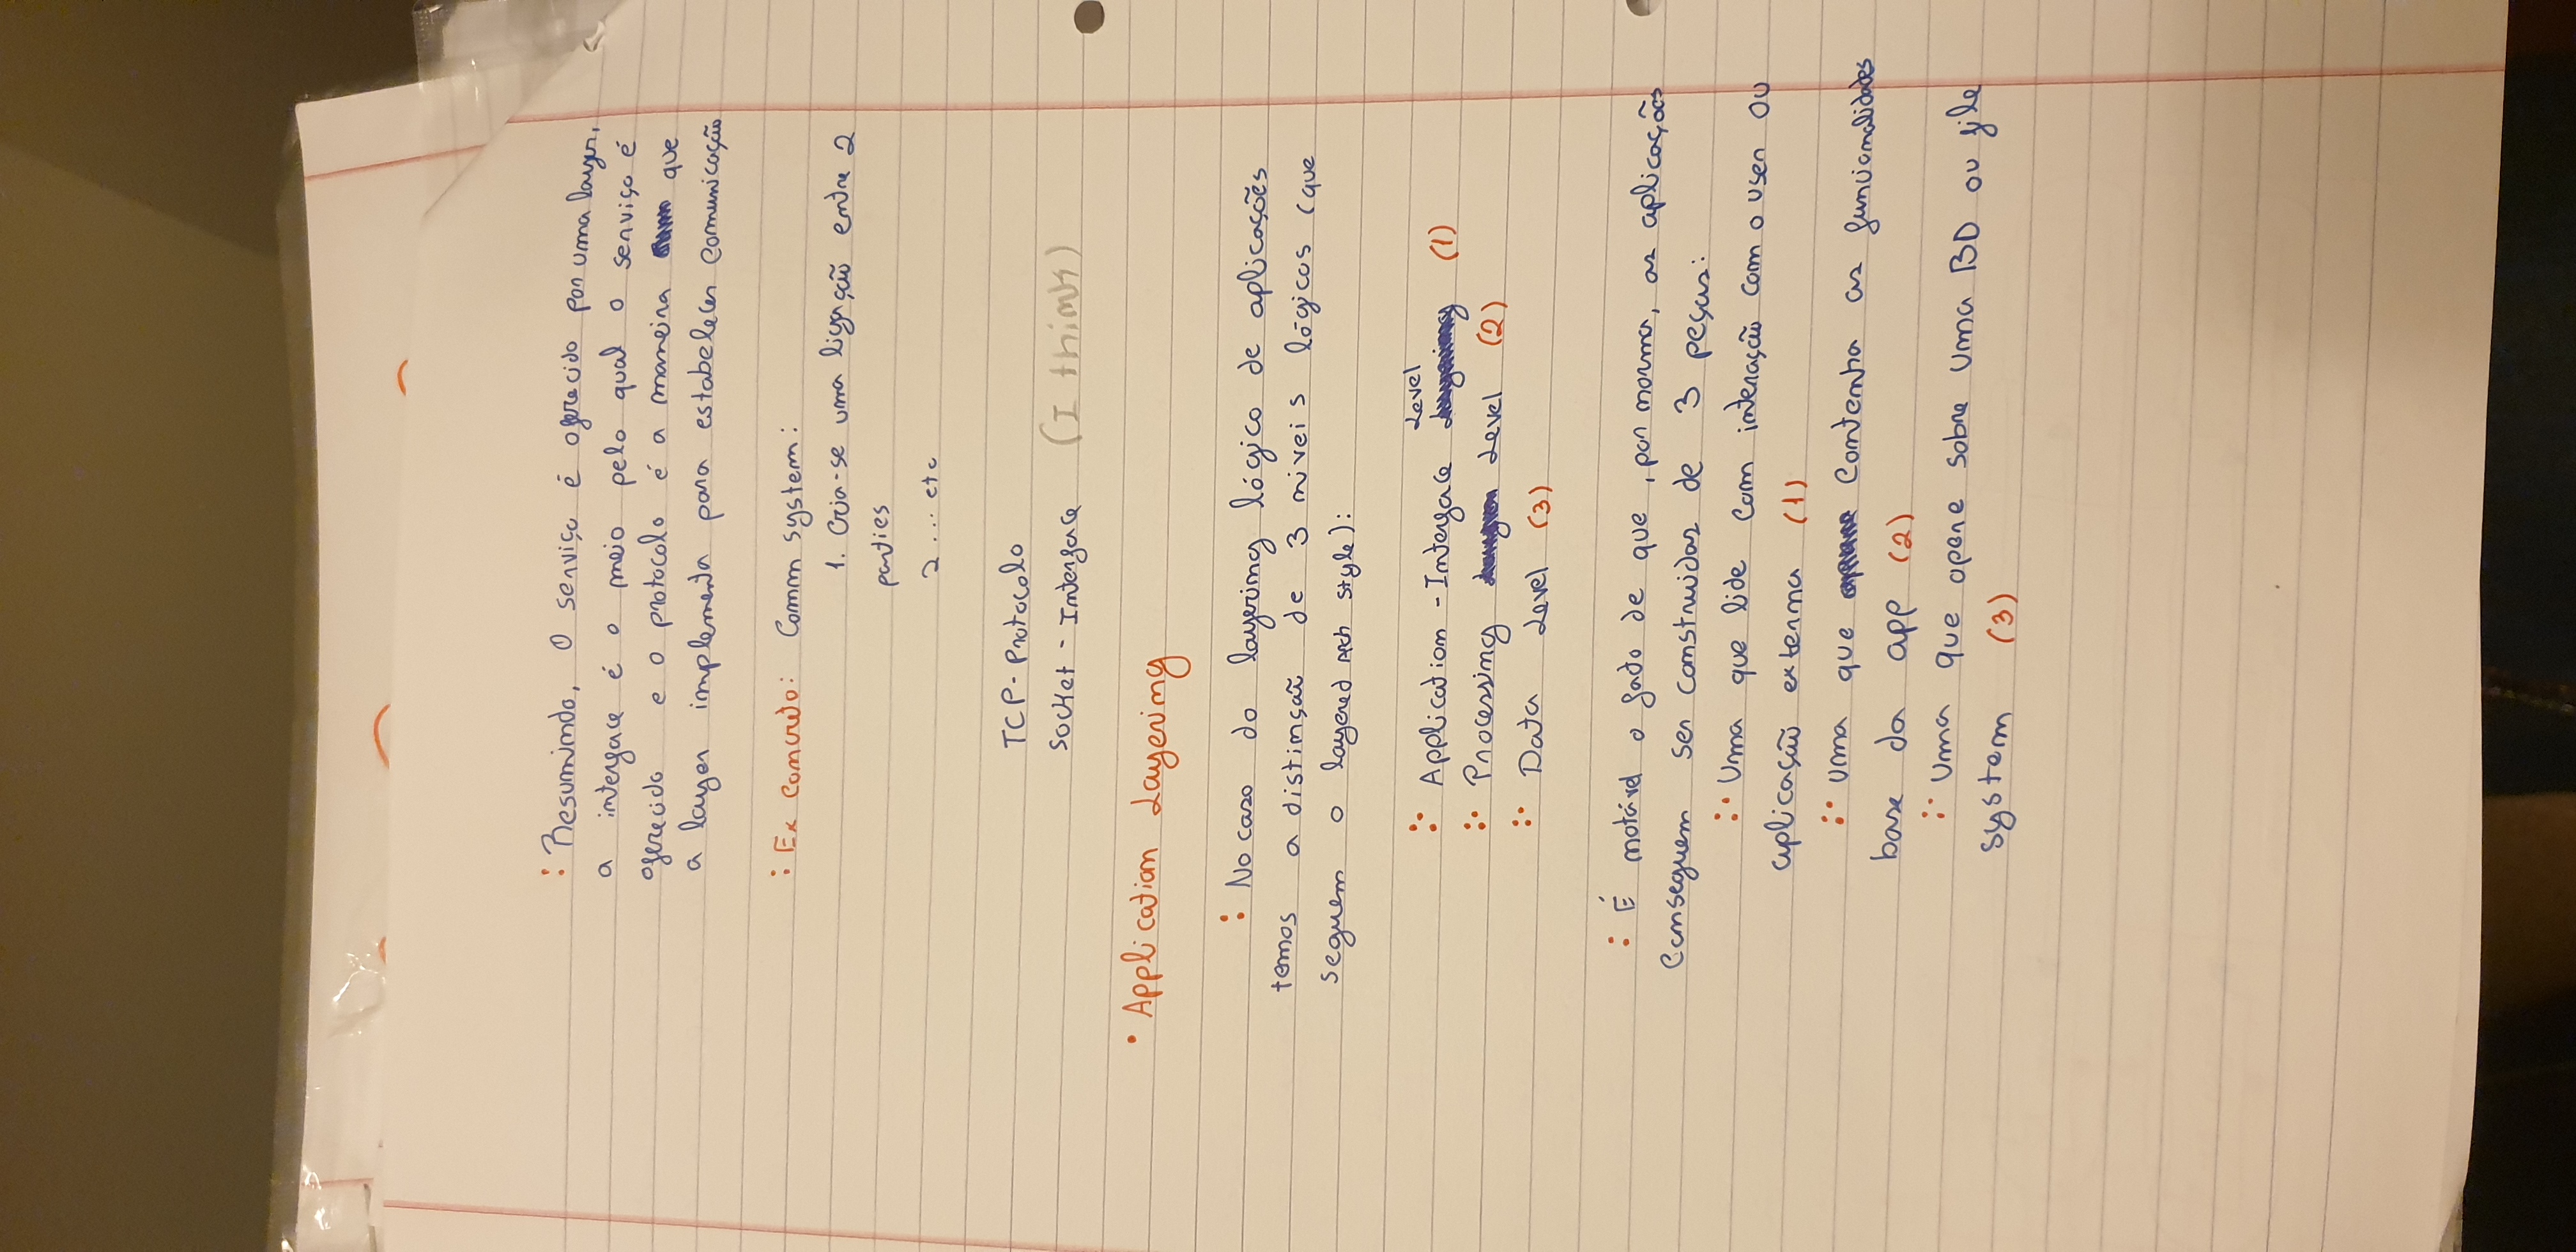 : Resumindo, O serviço é oferecido por uma layer,
a interface é o meio pelo qual o serviço é
oferecido e o protocolo é a maneira que
a layer implementa para estabelecer comunicação
: Ex Concreto: Comm system:
1. Cria-se uma ligação entre 2
parties
2 ... etc
TCP - Protocolo
Socket - Interface (I think)
• Application Layering
: No caso do layering lógico de aplicações
temos a distinsão de 3 niveis lógicos (que
seguem o layered Arch style):
Level
Application - Interface (1)
Processing Level (2)
Data Level (3)
: É notável o fato de que, por norma, as aplicações
conseguem ser construidas de 3 peças:
Uma que lide com interação com o user ou
aplicação externa (1)
uma que contenha as funcionalidades
base da app (2)
uma que opere sobre uma BD ou file
system (3)